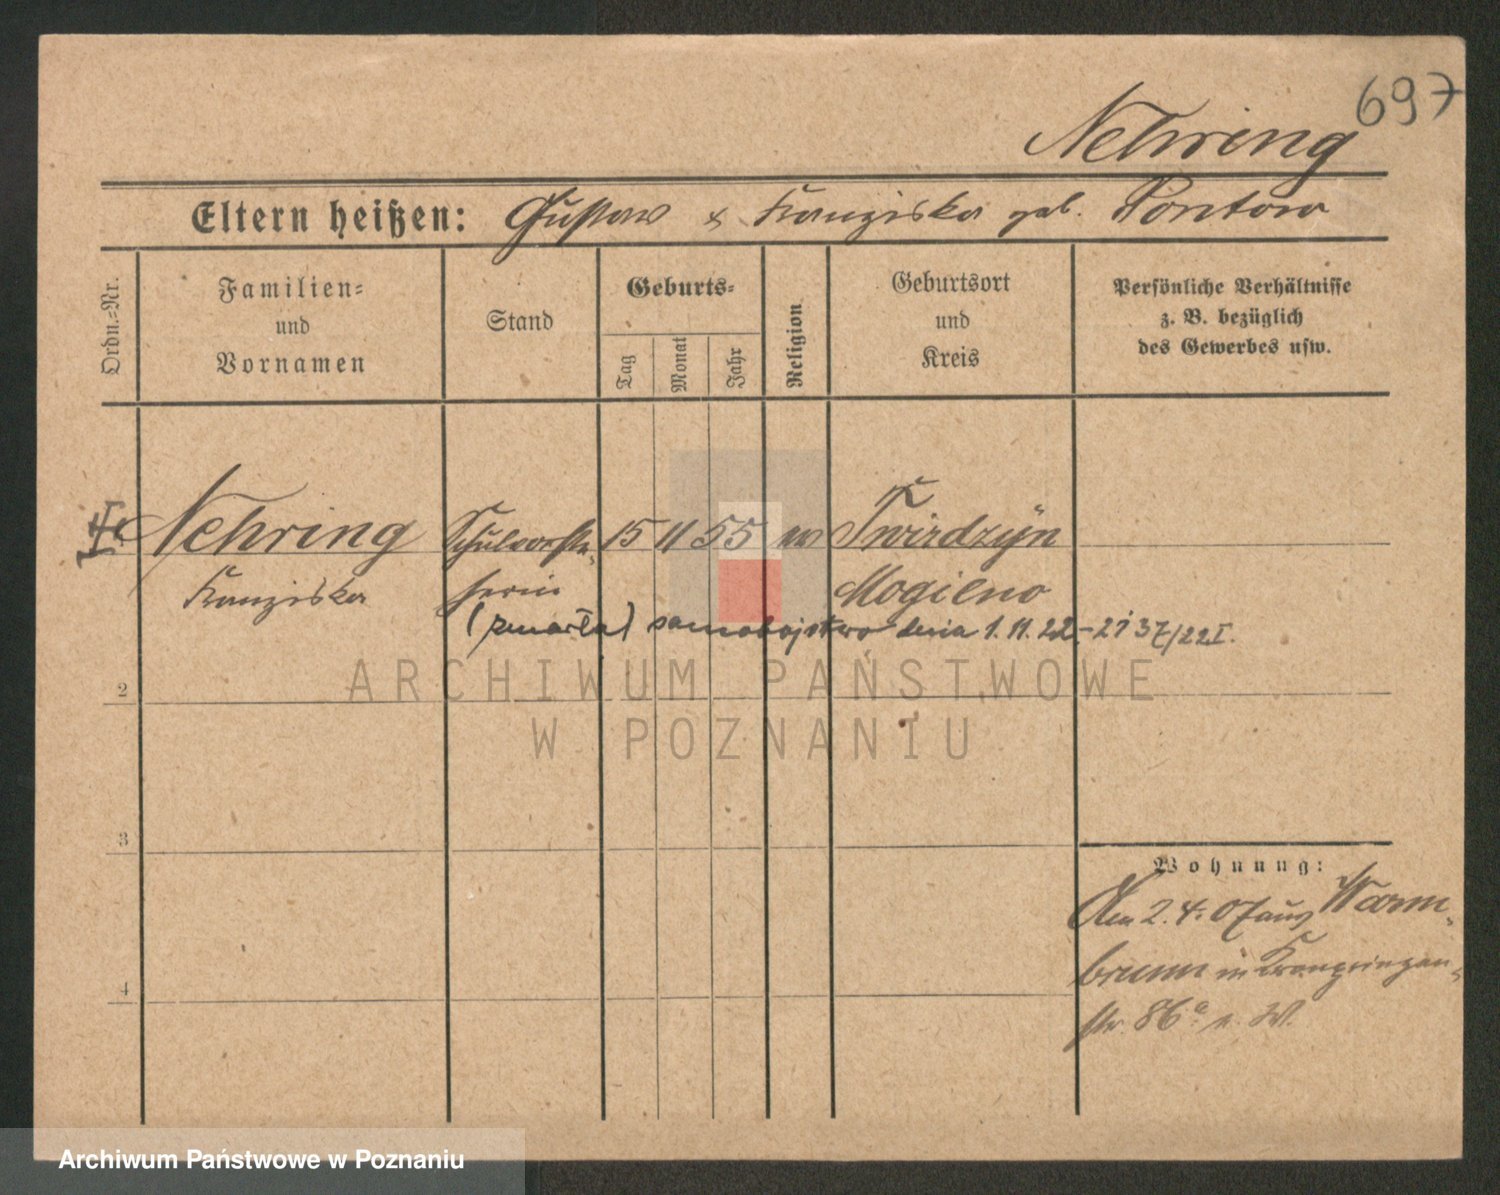 697
Nehring
Eltern heißen: Gustav & Franziska geb. Pontow
Ordn.-Nr.
Familien-
und
Vornamen
Stand
Geburts-
Tag
Monat
Jahr
Religion
Geburtsort
und
Kreis
Persönliche Verhältnisse
z. B. bezüglich
des Gewerbes usw.
Nehring Schulvorste- 15 11 55 Twirdzyn
Franziska herin Mogilno
(zmarła) samobójstwo dnia 1.11.22
2
3
4
Wohnung:
Den 2.4.07 aus Warm-
brunn in Kronprinzen-
str. 86a
ARCHIWUM PAŃSTWOWE
W POZNANIU
Archiwum Państwowe w Poznaniu